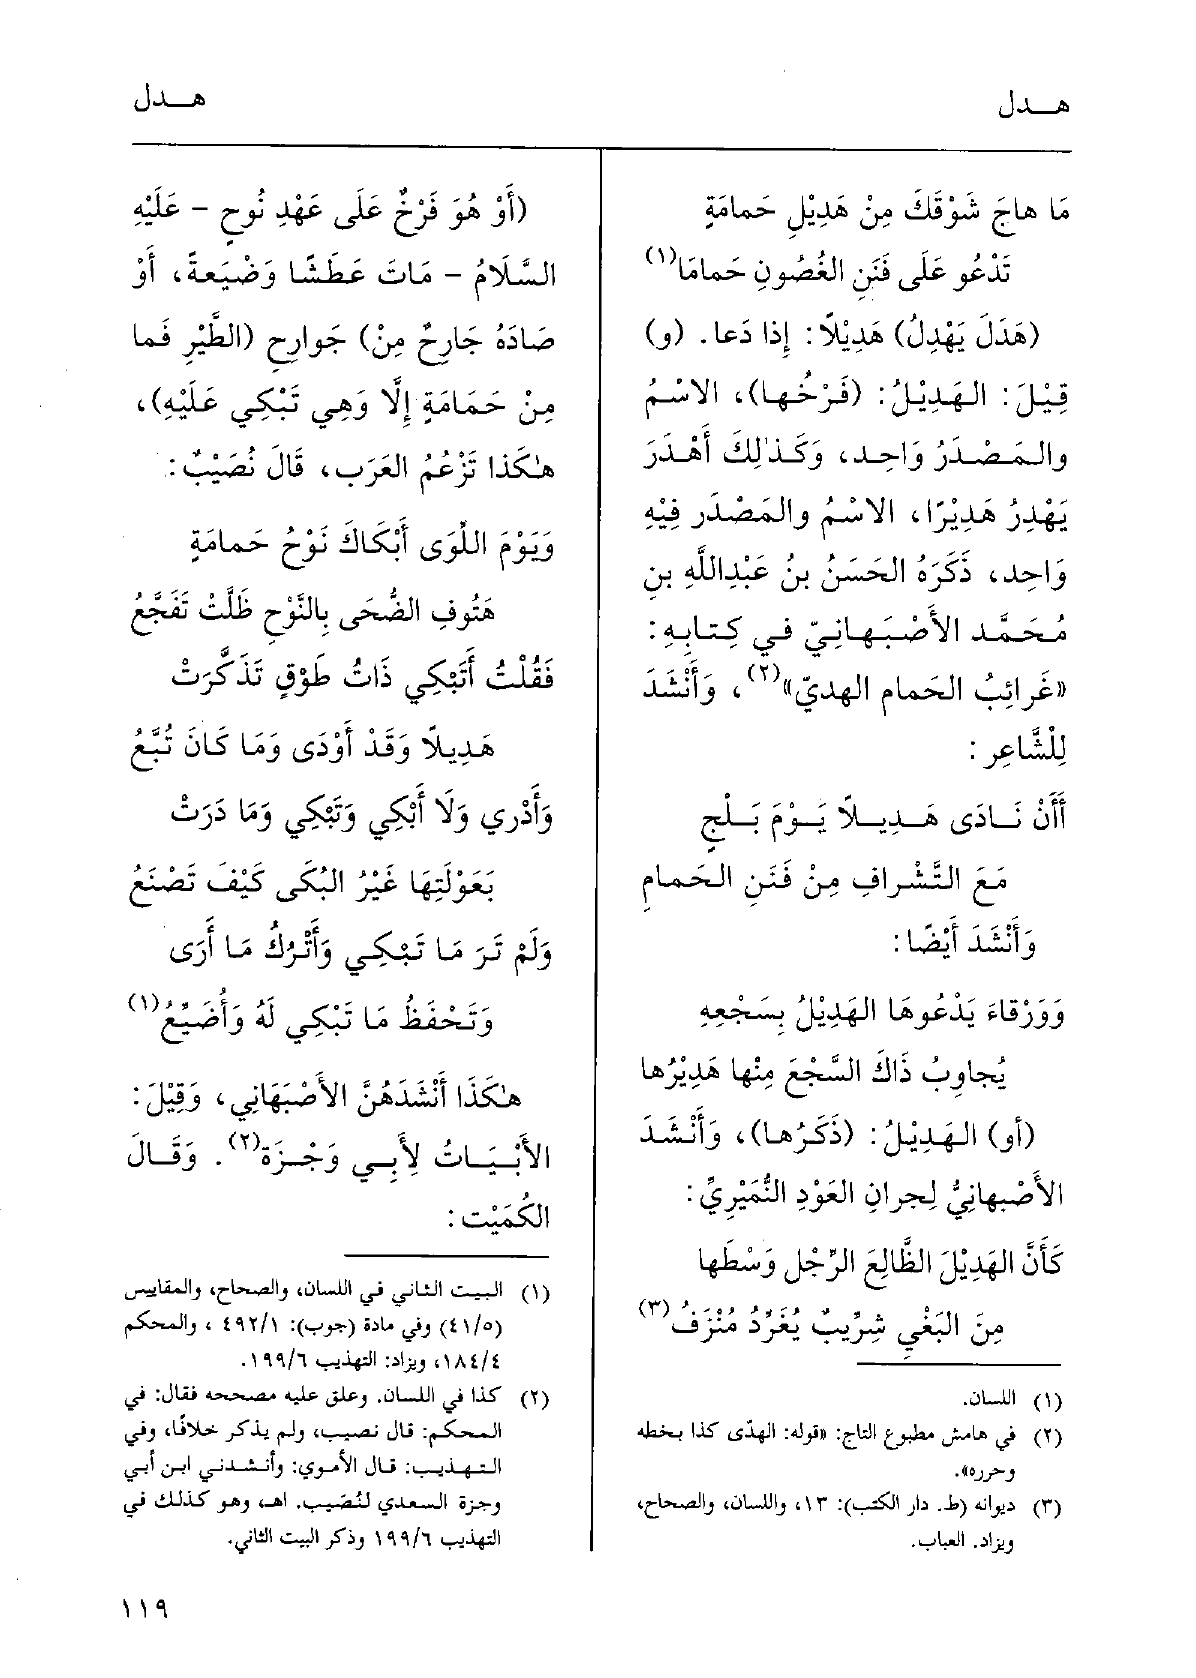 هـدل
هـدل
مَا هاجَ شَوْقَكَ مِنْ هَدِيْلِ حَمامَةٍ
تَدْعُو عَلَى فَنَنِ الغُصُونِ حَمامَا(١)
(هَدَلَ يَهْدِلُ) هَدِيْلًا: إِذا دَعا. (و)
قِيْلَ: الهَدِيْلُ: (فَرْخُها)، الاسْمُ
والمَصْدَرُ وَاحِد، وَكَذٰلِكَ أَهْدَرَ
يَهْدِرُ هَدِيْرًا، الاسْمُ والمَصْدَر فِيْهِ
وَاحِد، ذَكَرَهُ الحَسَنُ بنُ عَبْدِاللَّهِ بنِ
مُحَمَّد الأَصْبَهانِيّ في كِتابِهِ:
«غَرائِبُ الحَمام الهديّ»(٢)، وَأَنْشَدَ
لِلْشَّاعِرِ:
أَأَنْ نَادَى هَدِيلًا يَوْمَ بَلْجٍ
مَعَ التَّشْرافِ مِنْ فَنَنِ الحَمامِ
وَأَنْشَدَ أَيْضًا:
وَوَرْقاءَ يَدْعُوهَا الهَدِيْلُ بِسَجْعِهِ
يُجاوِبُ ذَاكَ السَّجْعَ مِنْها هَدِيْرُها
(أو) الهَدِيْلُ: (ذَكَرُها)، وَأَنْشَدَ
الأَصْبهانِيُّ لجرانِ العَوْدِ النُّمَيْرِيِّ:
كَأَنَّ الهَدِيْلَ الظَّالِعَ الرِّجْلِ وَسْطَها
مِنَ البَغْيِ شِرِّيبٌ يُغَرِّدُ مُنْزَفُ(٣)
(١) اللسان.
(٢) في هامش مطبوع التاج: «قوله: الهدّى كذا بخطه
وحرره».
(٣) ديوانه (ط. دار الكتب): ١٣، واللسان، والصحاح،
ويزاد. العباب.
(أَوْ هُوَ فَرْخٌ عَلَى عَهْدِ نُوحٍ - عَلَيْهِ
السَّلَامُ - مَاتَ عَطَشًا وَضَيْعَةً، أَوْ
صَادَهُ جَارِحٌ مِنْ) جَوارِحِ (الطَّيْرِ فَما
مِنْ حَمَامَةٍ إِلَّا وَهِي تَبْكِي عَلَيْهِ)،
هٰكَذا تَزْعُم العَرَب، قَالَ نُصَيْبٌ:
وَيَوْمَ اللِّوَى أَبْكَاكَ نَوْحُ حَمامَةٍ
هَتُوفِ الضُّحَى بِالنَّوْحِ ظَلَّتْ تَفَجَّعُ
فَقُلْتُ أَتَبْكِي ذَاتُ طَوْقٍ تَذَكَّرَتْ
هَدِيلًا وَقَدْ أَوْدَى وَمَا كَانَ تُبَّعُ
وَأَدْرِي وَلَا أَبْكِي وَتَبْكِي وَمَا دَرَتْ
بَعَوْلَتِهَا غَيْرُ البُكَى كَيْفَ تَصْنَعُ
وَلَم تَرَ مَا تَبْكِي وَأَتْرُكُ مَا أَرَى
وَتَحْفَظُ مَا تَبْكِي لَهُ وَأُضَيِّعُ(١)
هٰكَذَا أَنْشَدَهُنَّ الأَصْبَهَانِي، وَقِيْلَ:
الأَبْيَاتُ لِأَبِي وَجْزَة(٢). وَقَالَ
الكُمَيْت:
(١) البيت الثاني في اللسان، والصحاح، والمقاييس
(٤١/٥) وفي مادة (جوب): ٤٩٢/١، والمحكم
١٨٤/٤، ويزاد: التهذيب ١٩٩/٦.
(٢) كذا في اللسان. وعلق عليه مصححه فقال: في
المحكم: قال نصيب، ولم يذكر خلافًا، وفي
التهذيب: قال الأموي: وأنشدني ابن أبي
وجزة السعدي لنُصَيب. اهـ، وهو كذلك في
التهذيب ١٩٩/٦ وذكر البيت الثاني.
١١٩